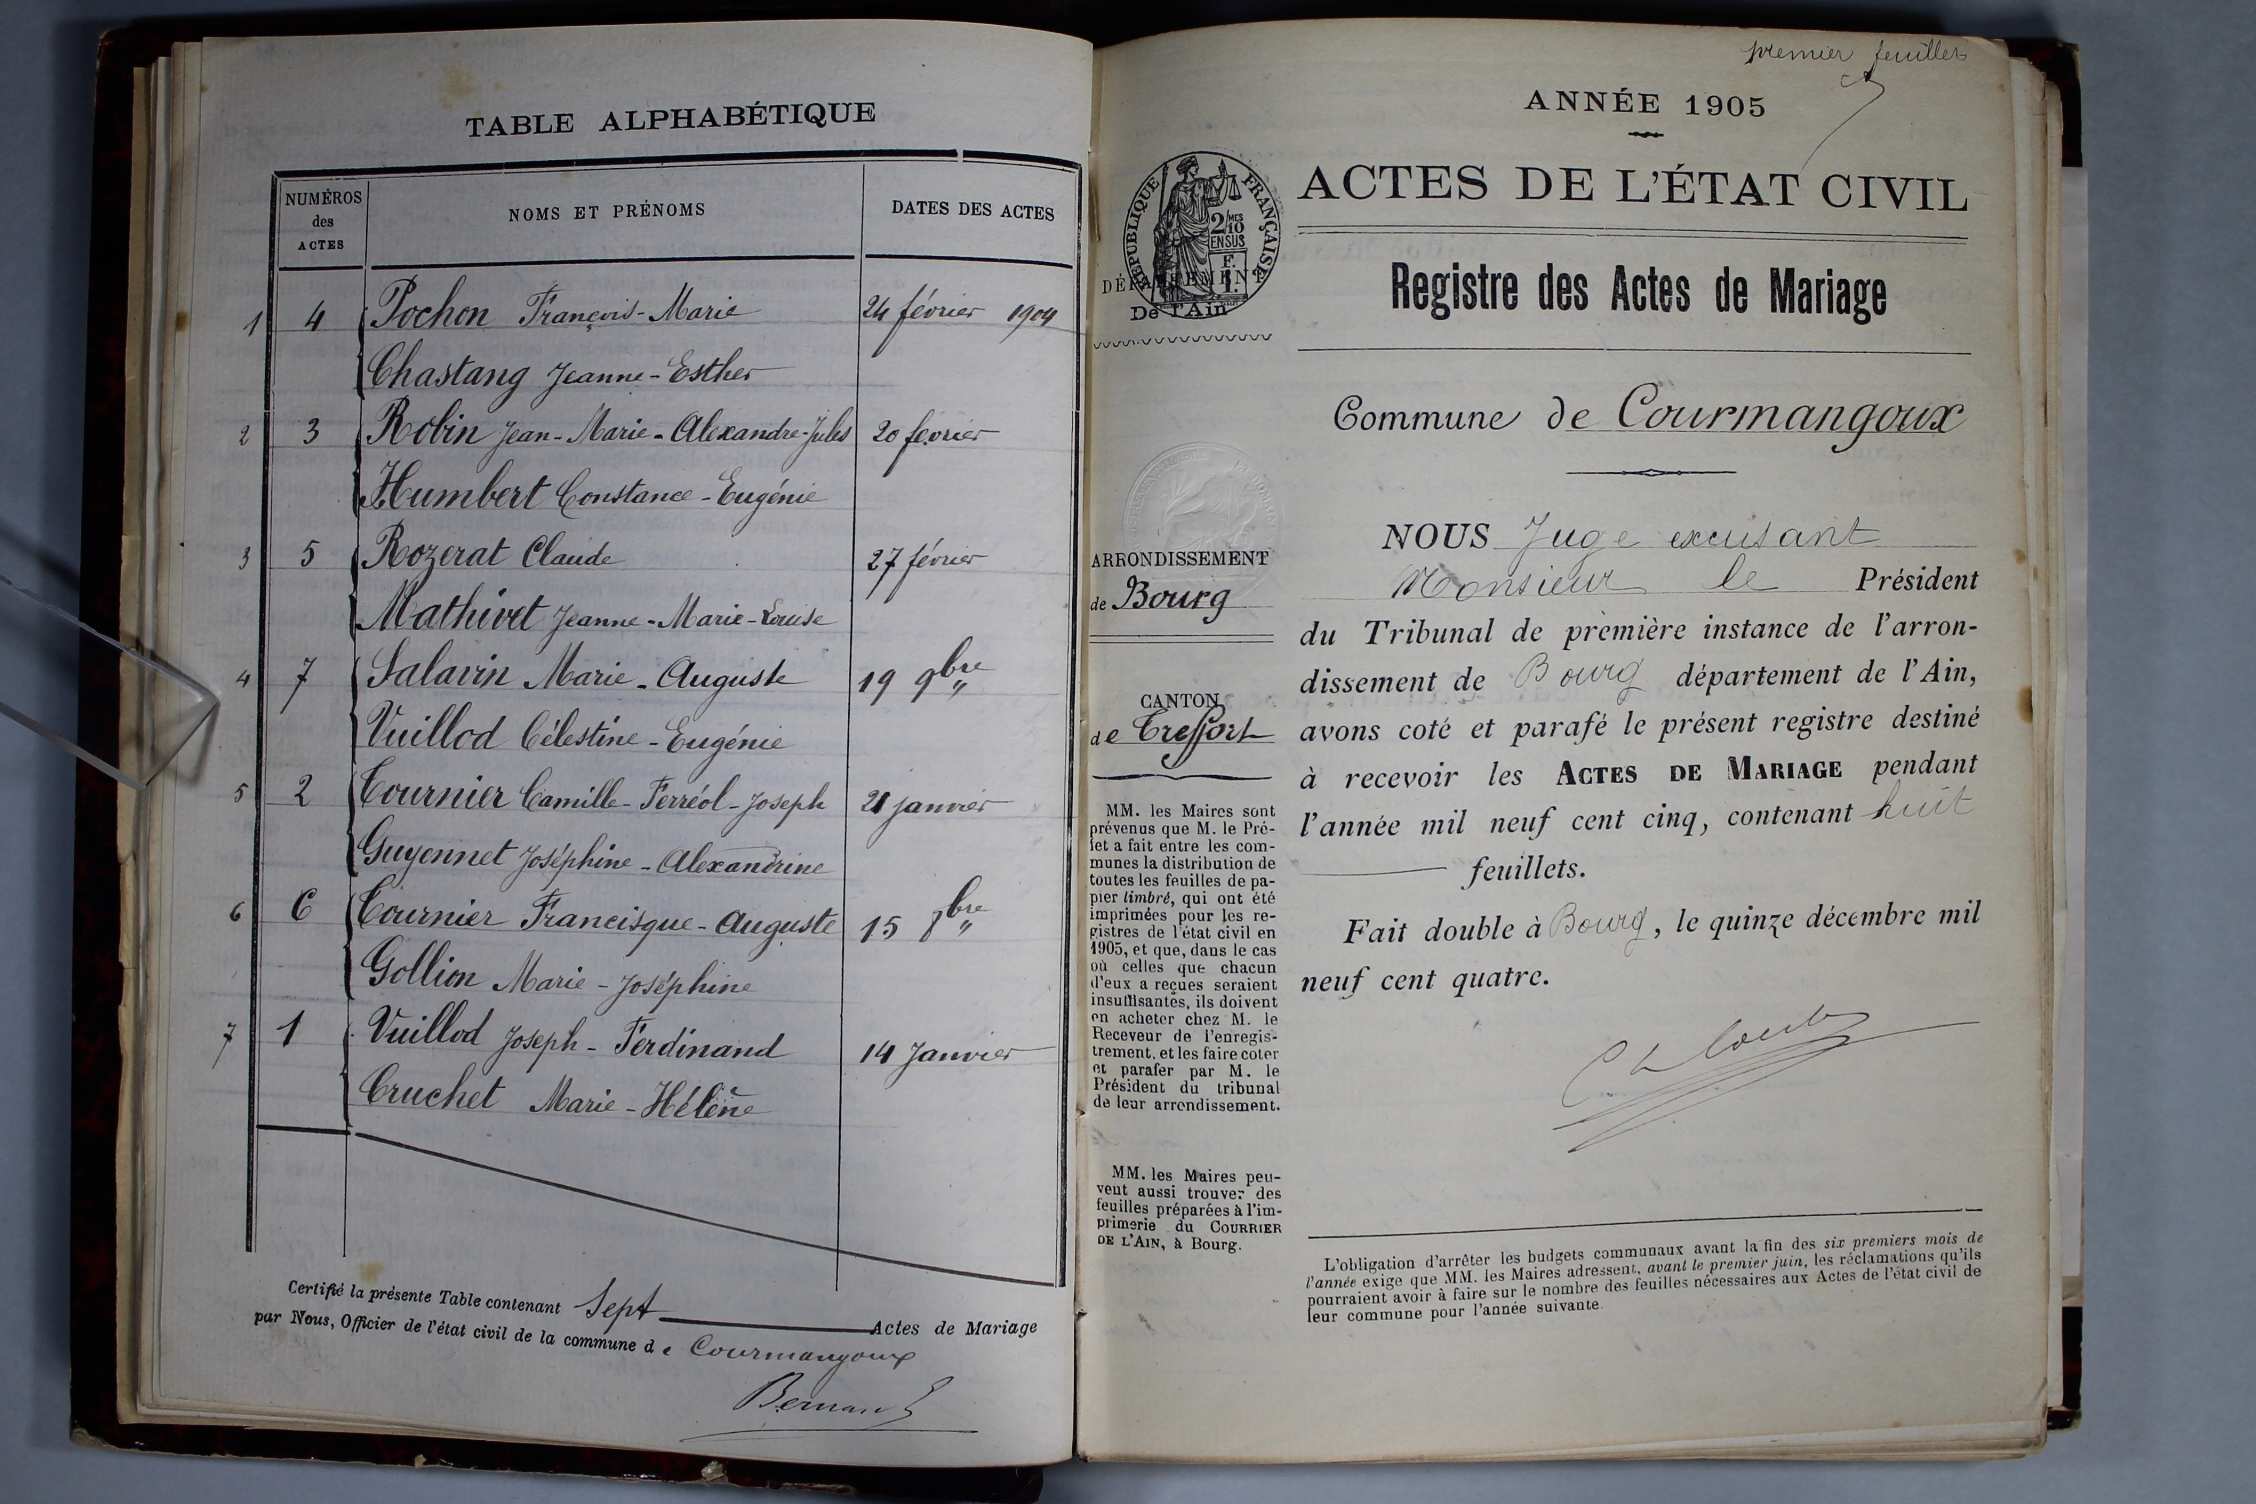 TABLE ALPHABÉTIQUE
NUMÉROS des ACTES
NOMS ET PRÉNOMS
DATES DES ACTES
1 4 Pochon François-Marie 24 février 1904
Chastang Jeanne-Esther
2 3 Robin Jean-Marie-Alexandre-Jules 20 février
Humbert Constance-Eugénie
3 5 Rozerat Claude 27 février
Mathivet Jeanne-Marie-Louise
4 7 Salavin Marie-Auguste 19 9bre "
Vuillod Célestine-Eugénie
5 2 Tournier Camille-Ferréol-Joseph 21 janvier
Guyennet Joséphine-Alexandrine
6 6 Tournier Francisque-Auguste 15 8bre "
Gollion Marie-Joséphine
7 1 Vuillod Joseph-Ferdinand 14 Janvier
Cruchet Marie-Hélène
Certifié la présente Table contenant Sept Actes de Mariage
par Nous, Officier de l'état civil de la commune de Courmangoux
premier feuillet
ANNÉE 1905
ACTES DE L'ÉTAT CIVIL
Registre des Actes de Mariage
RÉPUBLIQUE FRANÇAISE
2/10 MES
EN SUS
DÉPARTEMENT
De l'Ain
ARRONDISSEMENT
de Bourg
CANTON
de Treffort
MM. les Maires sont
prévenus que M. le Pré-
fet a fait entre les com-
munes la distribution de
toutes les feuilles de pa-
pier timbré, qui ont été
imprimées pour les re-
gistres de l'état civil en
1905, et que, dans le cas
où celles que chacun
d'eux a reçues seraient
insuffisantes, ils doivent
en acheter chez M. le
Receveur de l'enregis-
trement, et les faire coter
et parafer par M. le
Président du tribunal
de leur arrondissement.
MM. les Maires peu-
vent aussi trouver des
feuilles préparées à l'im-
primerie du COURRIER
DE L'AIN, à Bourg.
Commune de Courmangoux
NOUS Juge excusant
Monsieur le Président
du Tribunal de première instance de l'arron-
dissement de Bourg département de l'Ain,
avons coté et parafé le présent registre destiné
à recevoir les ACTES DE MARIAGE pendant
l'année mil neuf cent cinq, contenant huit
feuillets.
Fait double à Bourg, le quinze décembre mil
neuf cent quatre.
L'obligation d'arrêter les budgets communaux avant la fin des six premiers mois de
l'année exige que MM. les Maires adressent, avant le premier juin, les réclamations qu'ils
pourraient avoir à faire sur le nombre des feuilles nécessaires aux Actes de l'état civil de
leur commune pour l'année suivante.